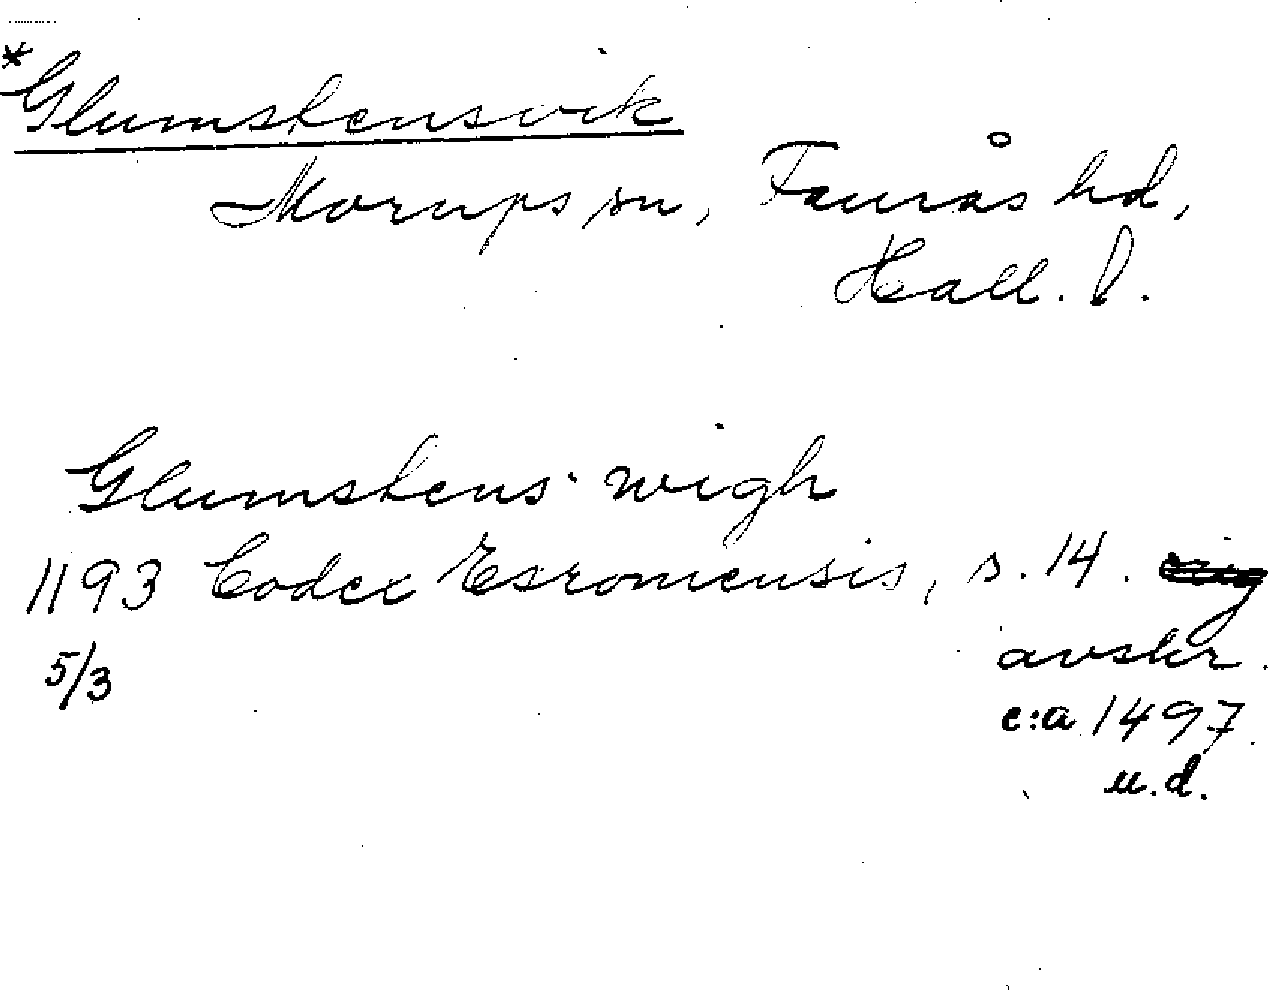 *Glumstensvik
Morups sn, Faurås hd,
Hall. l.
Glumstens wigh
1193 Codex Esromensis, s. 14.
5/3
avskr.
c:a 1497
u.d.